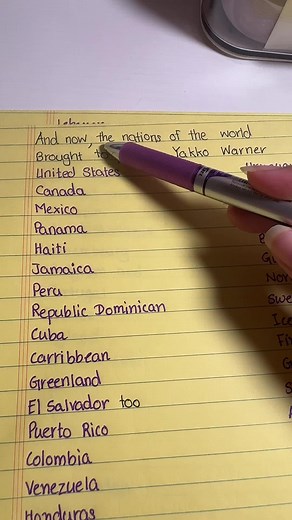 And now, the nations of the world
Brought Yakko Warner
United States
Canada
Mexico
Panama
Haiti
Jamaica
Peru
Republic Dominican
Cuba
Carribbean
Greenland
El Salvador too
Puerto Rico
Colombia
Venezuela
Honduras